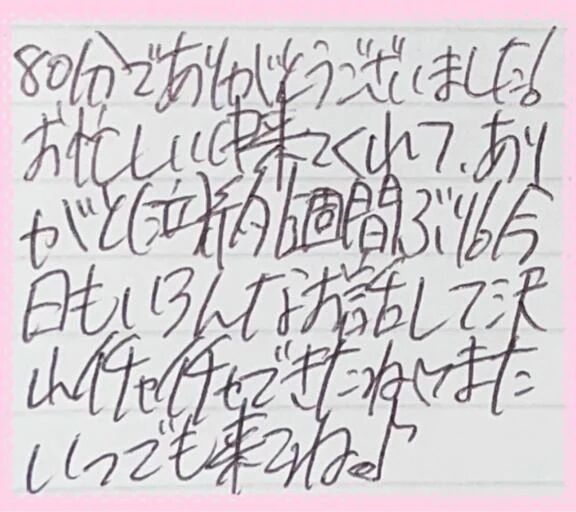 80分でありがとうございました!
お忙しい中来てくれて、あり
がと(泣)約6週間ぶり6今
日もいろんなお話して沢
山イチャイチャできたねまた
いつでも来てね♪